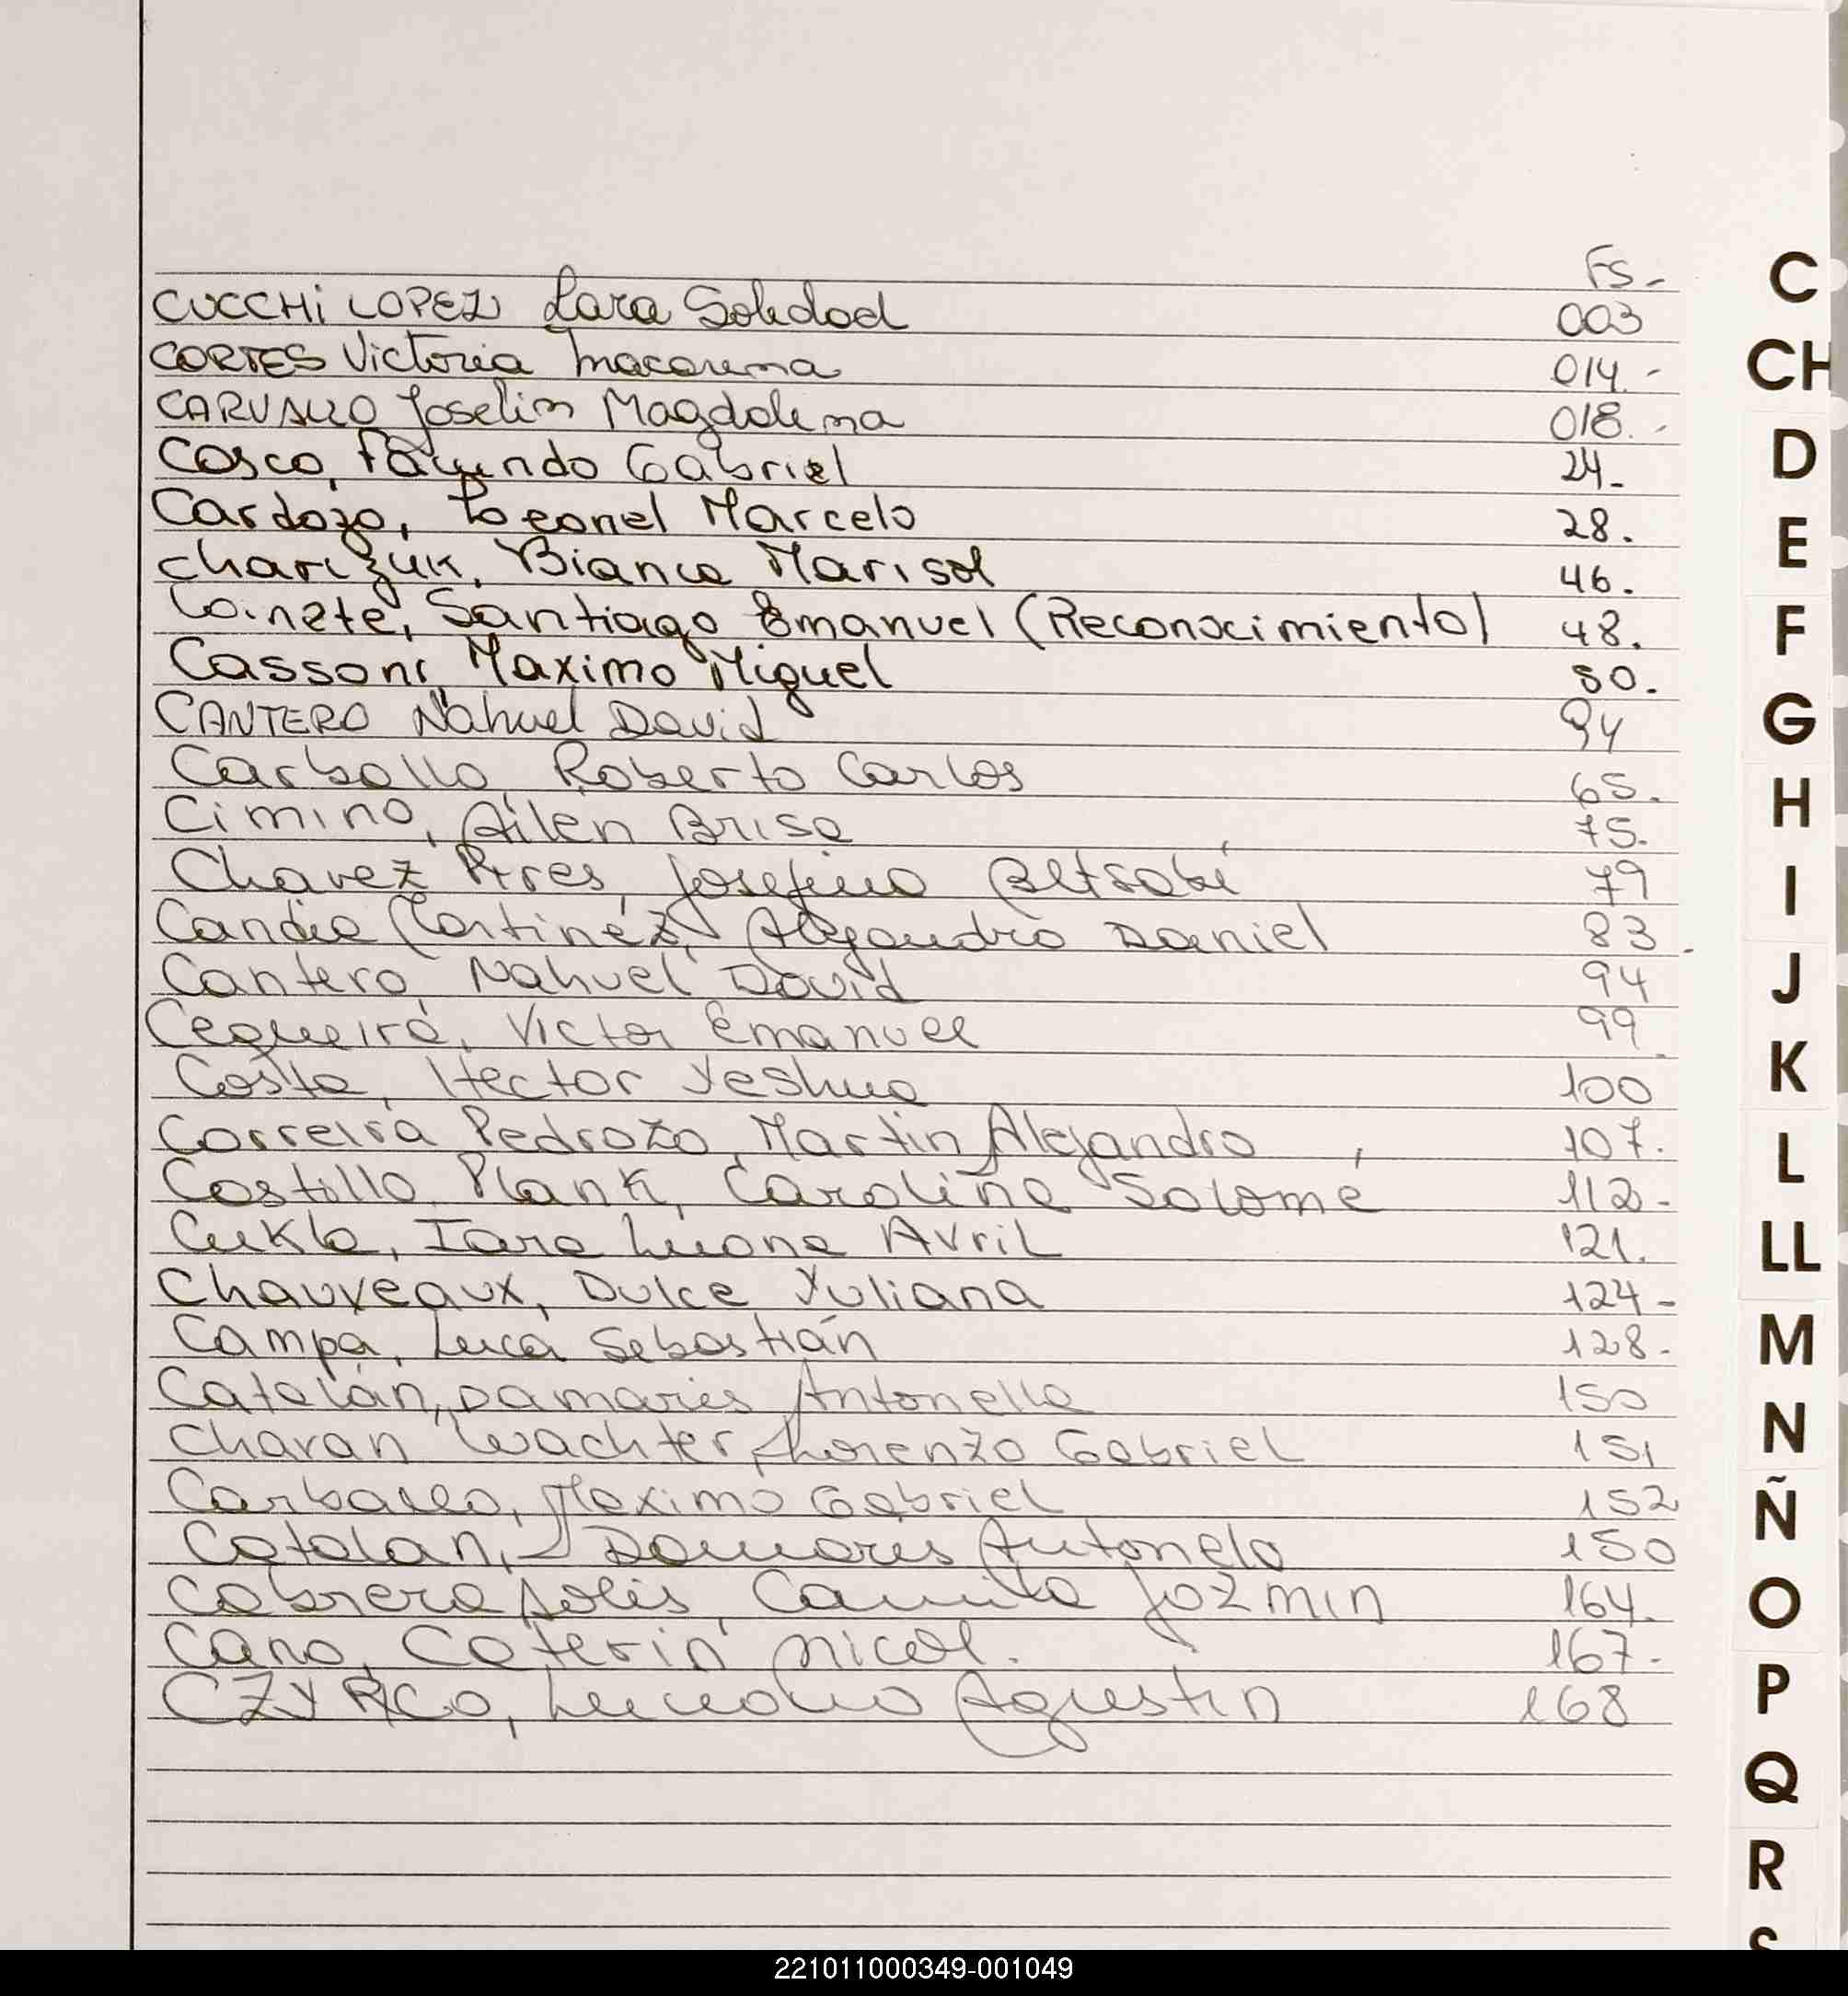 Fs-
CUCCHi LOPEZ Lara Soledad 003
CORTES Victoria Macarena 014.-
CARVALLO Joselin Magdalena 018.-
Cosco, Facundo Gabriel 24.-
Cardozo, Leonel Marcelo 28.
Charczuk, Bianca Marisol 46.
Santiago Emanuel (Reconocimiento) 48.
Cassoni, Maximo Miguel 50.
CANTERO Nahuel David 94
Carballo, Roberto Carlos 65.
Cimino, Ailen Brisa 75.
Chavez Pires, Josefina Betsabé 79
Candia Martinez, Alejandro Daniel 83.
Cantero, Nahuel David 94
Cequeira, Victor Emanuel 99.
Costa, Hector Yeshua 100
Correira Pedrozo, Martin Alejandro 107.
Castillo Plank, Carolina Salomé 112-
Cukla, Iara Luana Avril 121.
Chauveaux, Dulce Yuliana 124-
Campa, Luca Sebastián 128-
Catalán, Damaris Antonella 150
Charan Wachter, Lorenzo Gabriel 151
Carballo, Maximo Gabriel 152
Catalan, Damaris Antonela 150
Cabrera Solis, Camila Jazmin 164.
Cano, Caterin Nicol. 167-
Agustin 168
C
CH
D
E
F
G
H
I
J
K
L
LL
M
N
Ñ
O
P
Q
R
S
221011000349-001049